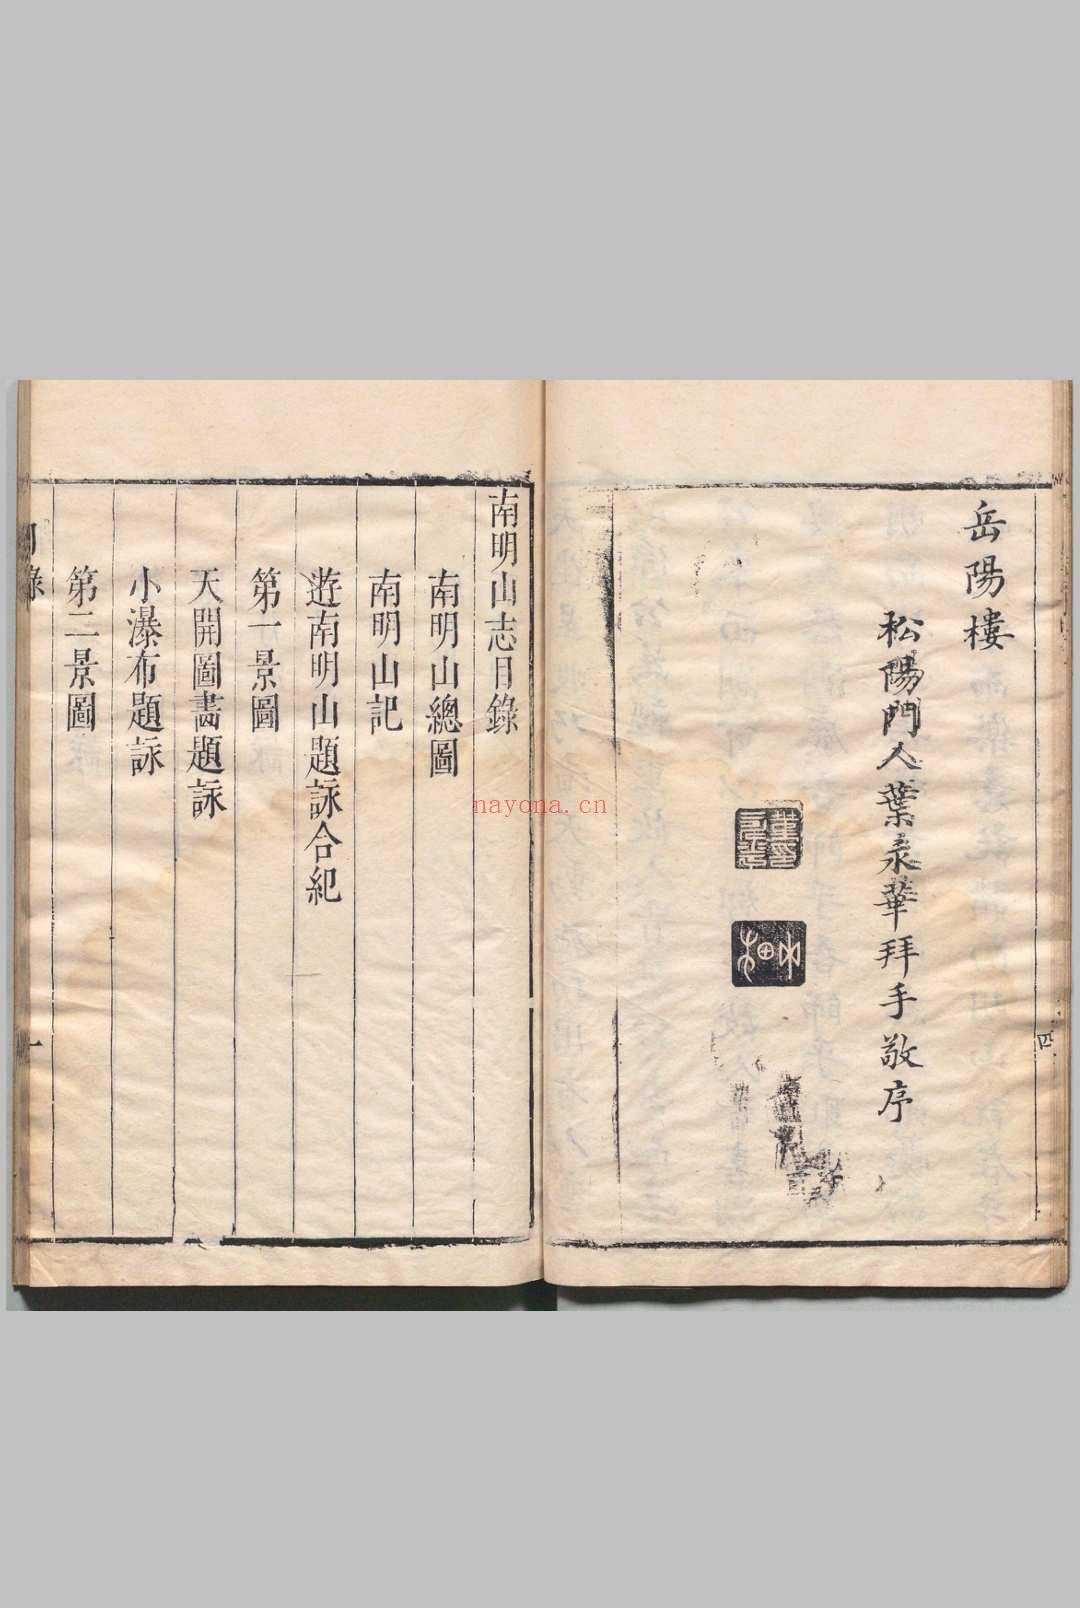 岳陽樓
松陽門人葉永華拜手敬序
四
南明山志目錄
南明山總圖
南明山記
遊南明山題詠合紀
第一景圖
天開圖畵題詠
小瀑布題詠
第二景圖
目錄
一
nayona.cn